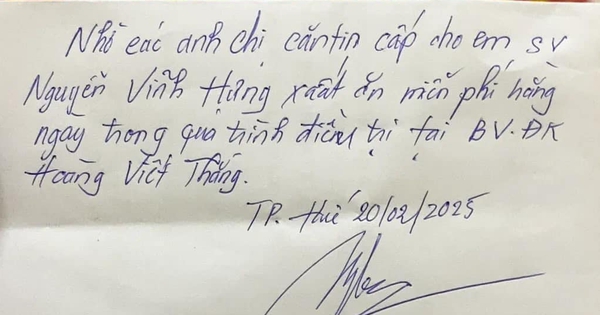 Nhờ các anh chị căntin cấp cho em SV
Nguyễn Vĩnh Hưng xuất ăn miễn phí hằng
ngày trong quá trình điều trị tại BV.ĐK
Hoàng Viết Thắng.
TP. Huế 20/02/2025